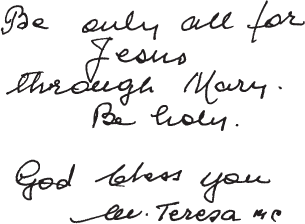 Be only all for
Jesus
through Mary.
Be holy.
God bless you
M. Teresa MC